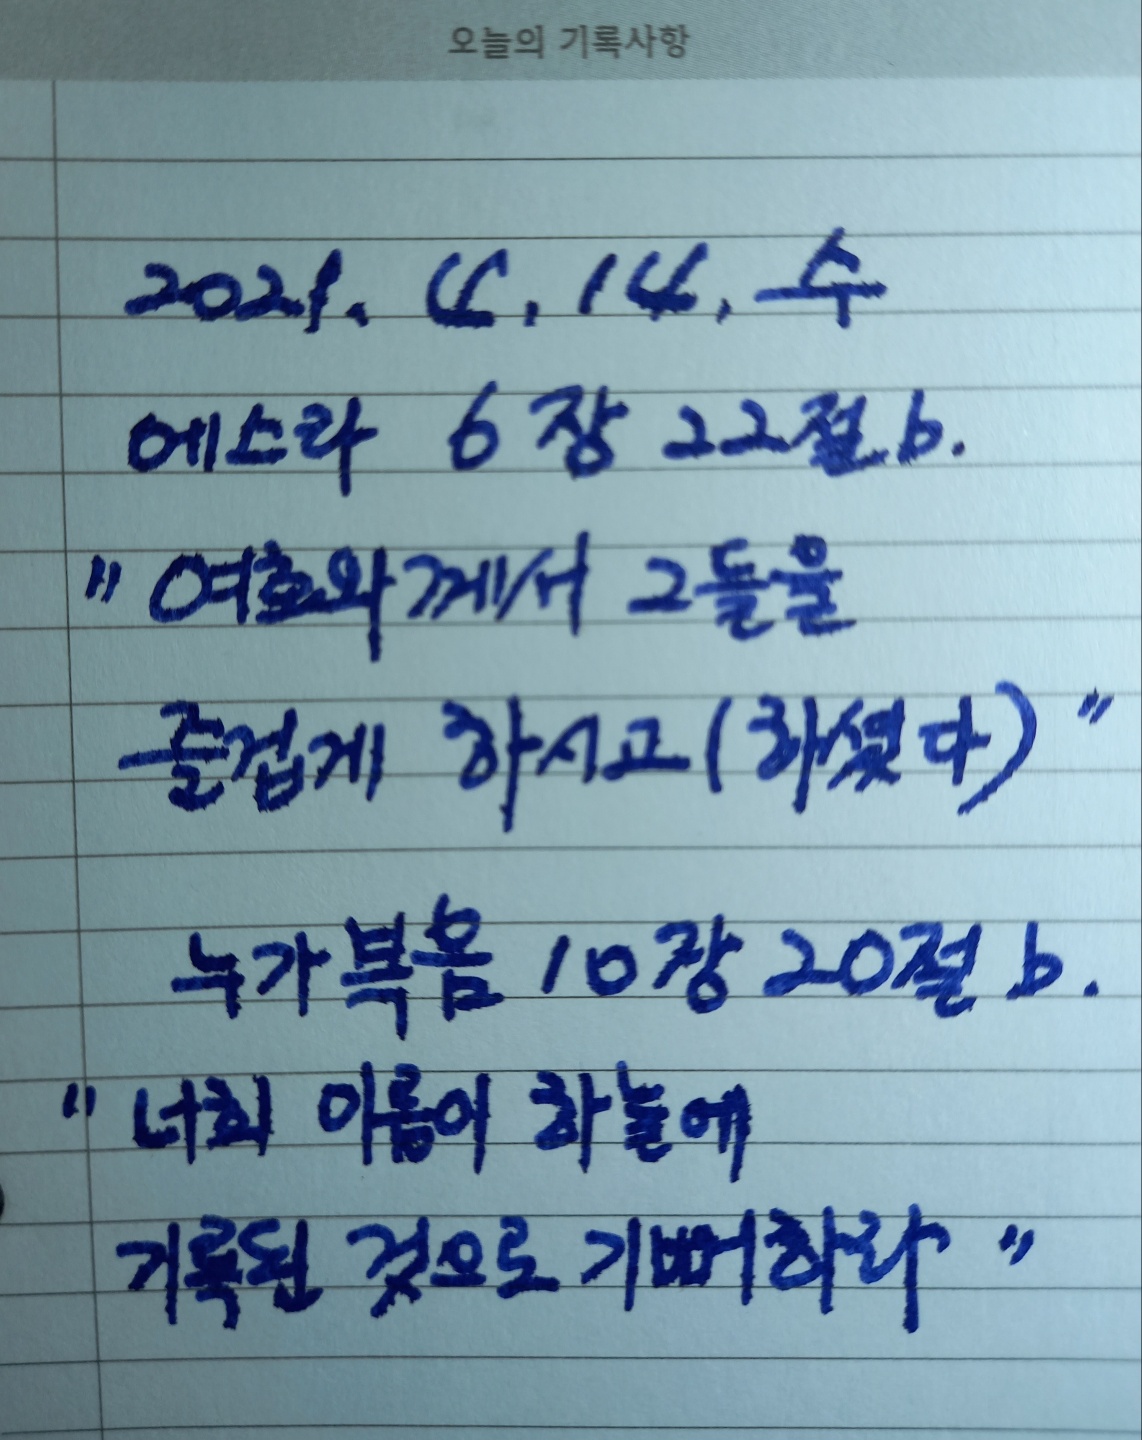 오늘의 기록사항
2021. 4. 14. 수
에스라 6장 22절 b.
"여호와께서 그들을
즐겁게 하시고(하셨다)"
누가복음 10장 20절 b.
"너희 이름이 하늘에
기록된 것으로 기뻐하라"